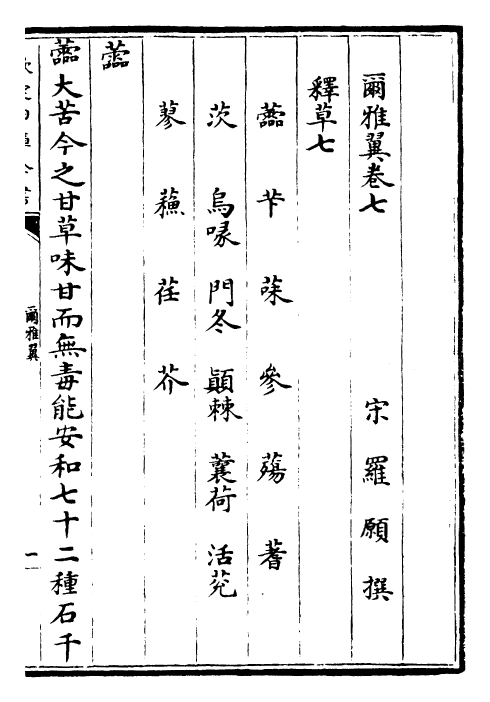 爾雅翼卷七
宋羅願撰
釋草七
蘦 芐 蔝 參 蒻 蓍
茨 烏喙 門冬 顚棘 蘘荷 活莌
蓼 蘓 荏 芥
蘦
蘦大苦今之甘草味甘而無毒能安和七十二種石千
爾雅翼
一